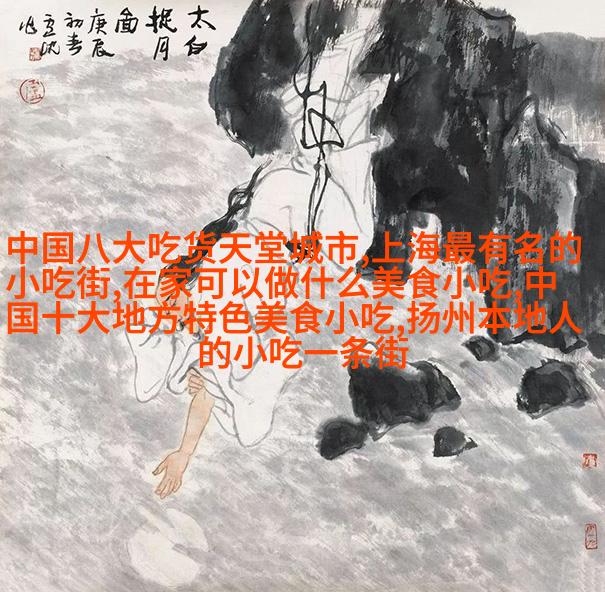 太白
捉月
图
庚辰
初春
中国八大吃货天堂城市,上海最有名的
小吃街,在家可以做什么美食小吃,中
国十大地方特色美食小吃,扬州本地人
的小吃一条街